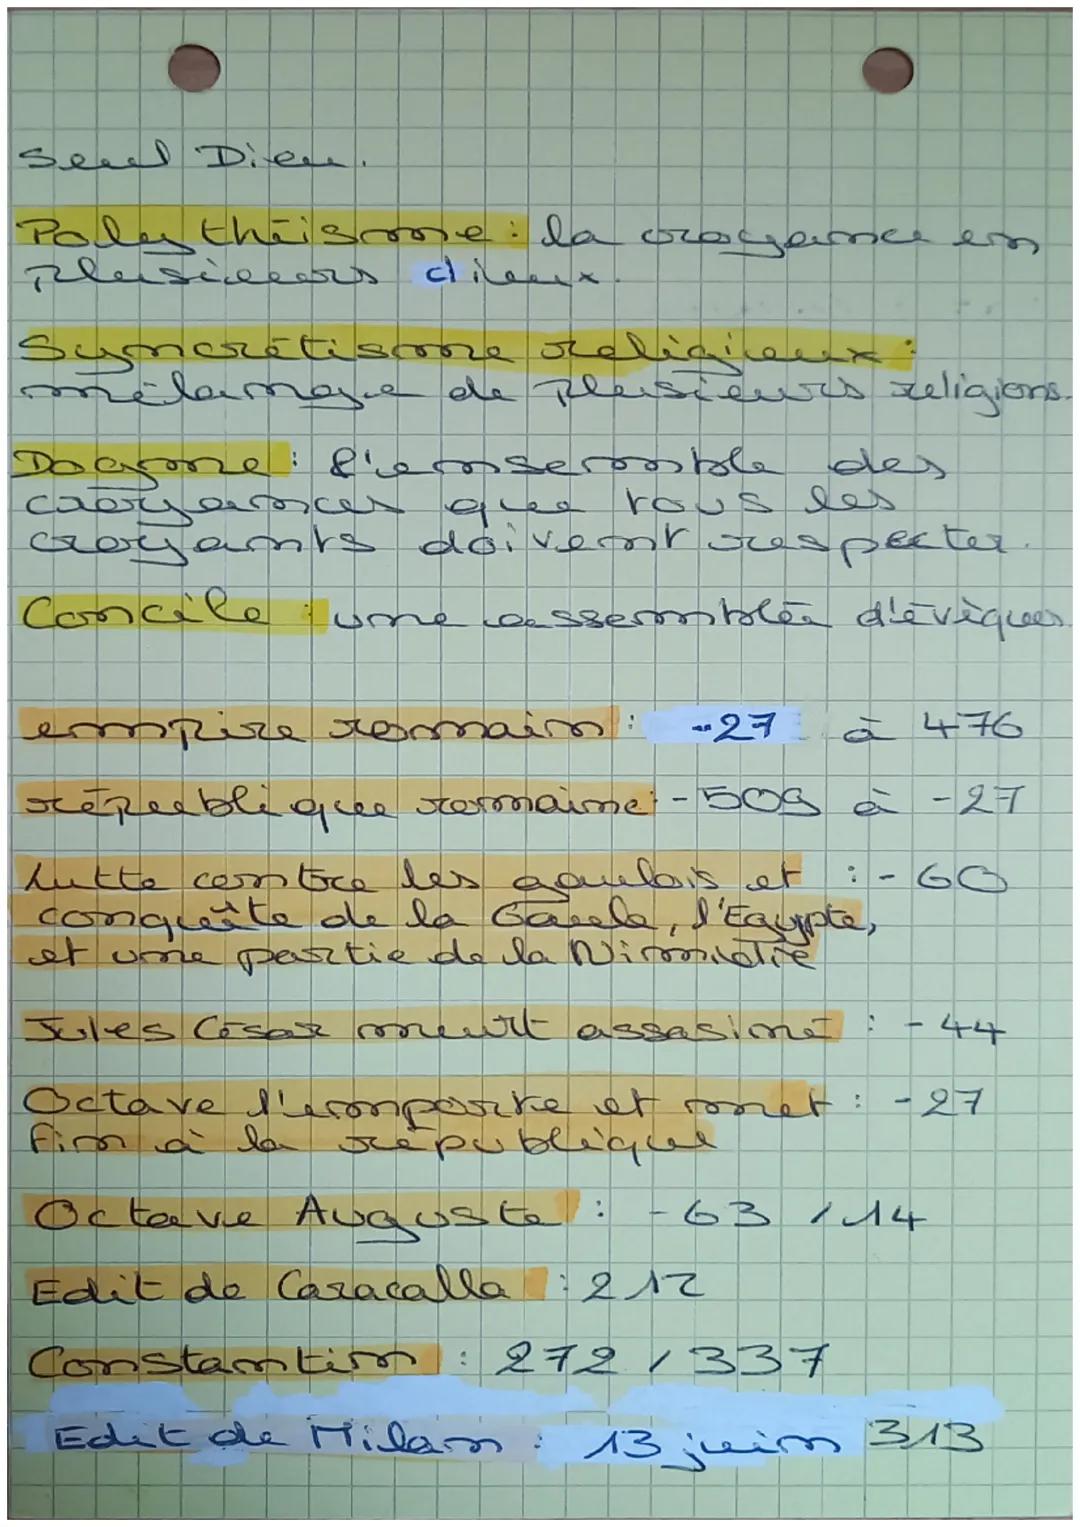 Seul Dieu.
Polythéisme : la croyance en
plusieurs dieux.
Syncrétisme religieux :
mélange de plusieurs religions.
Dogme : l'ensemble des
croyances que tous les
croyants doivent respecter.
Concile : une assemblée d'évêques
empire romain : -27 à 476
république romaine : -509 à -27
Lutte contre les gaulois et : -60
conquête de la Gaule, l'Egypte,
et une partie de la Nimidie
Jules César meurt assasiné : -44
Octave l'emporte et met : -27
fin à la république
Octave Auguste : -63 / 14
Edit de Caracalla : 212
Constantin : 272 / 337
Edit de Milan : 13 juin 313